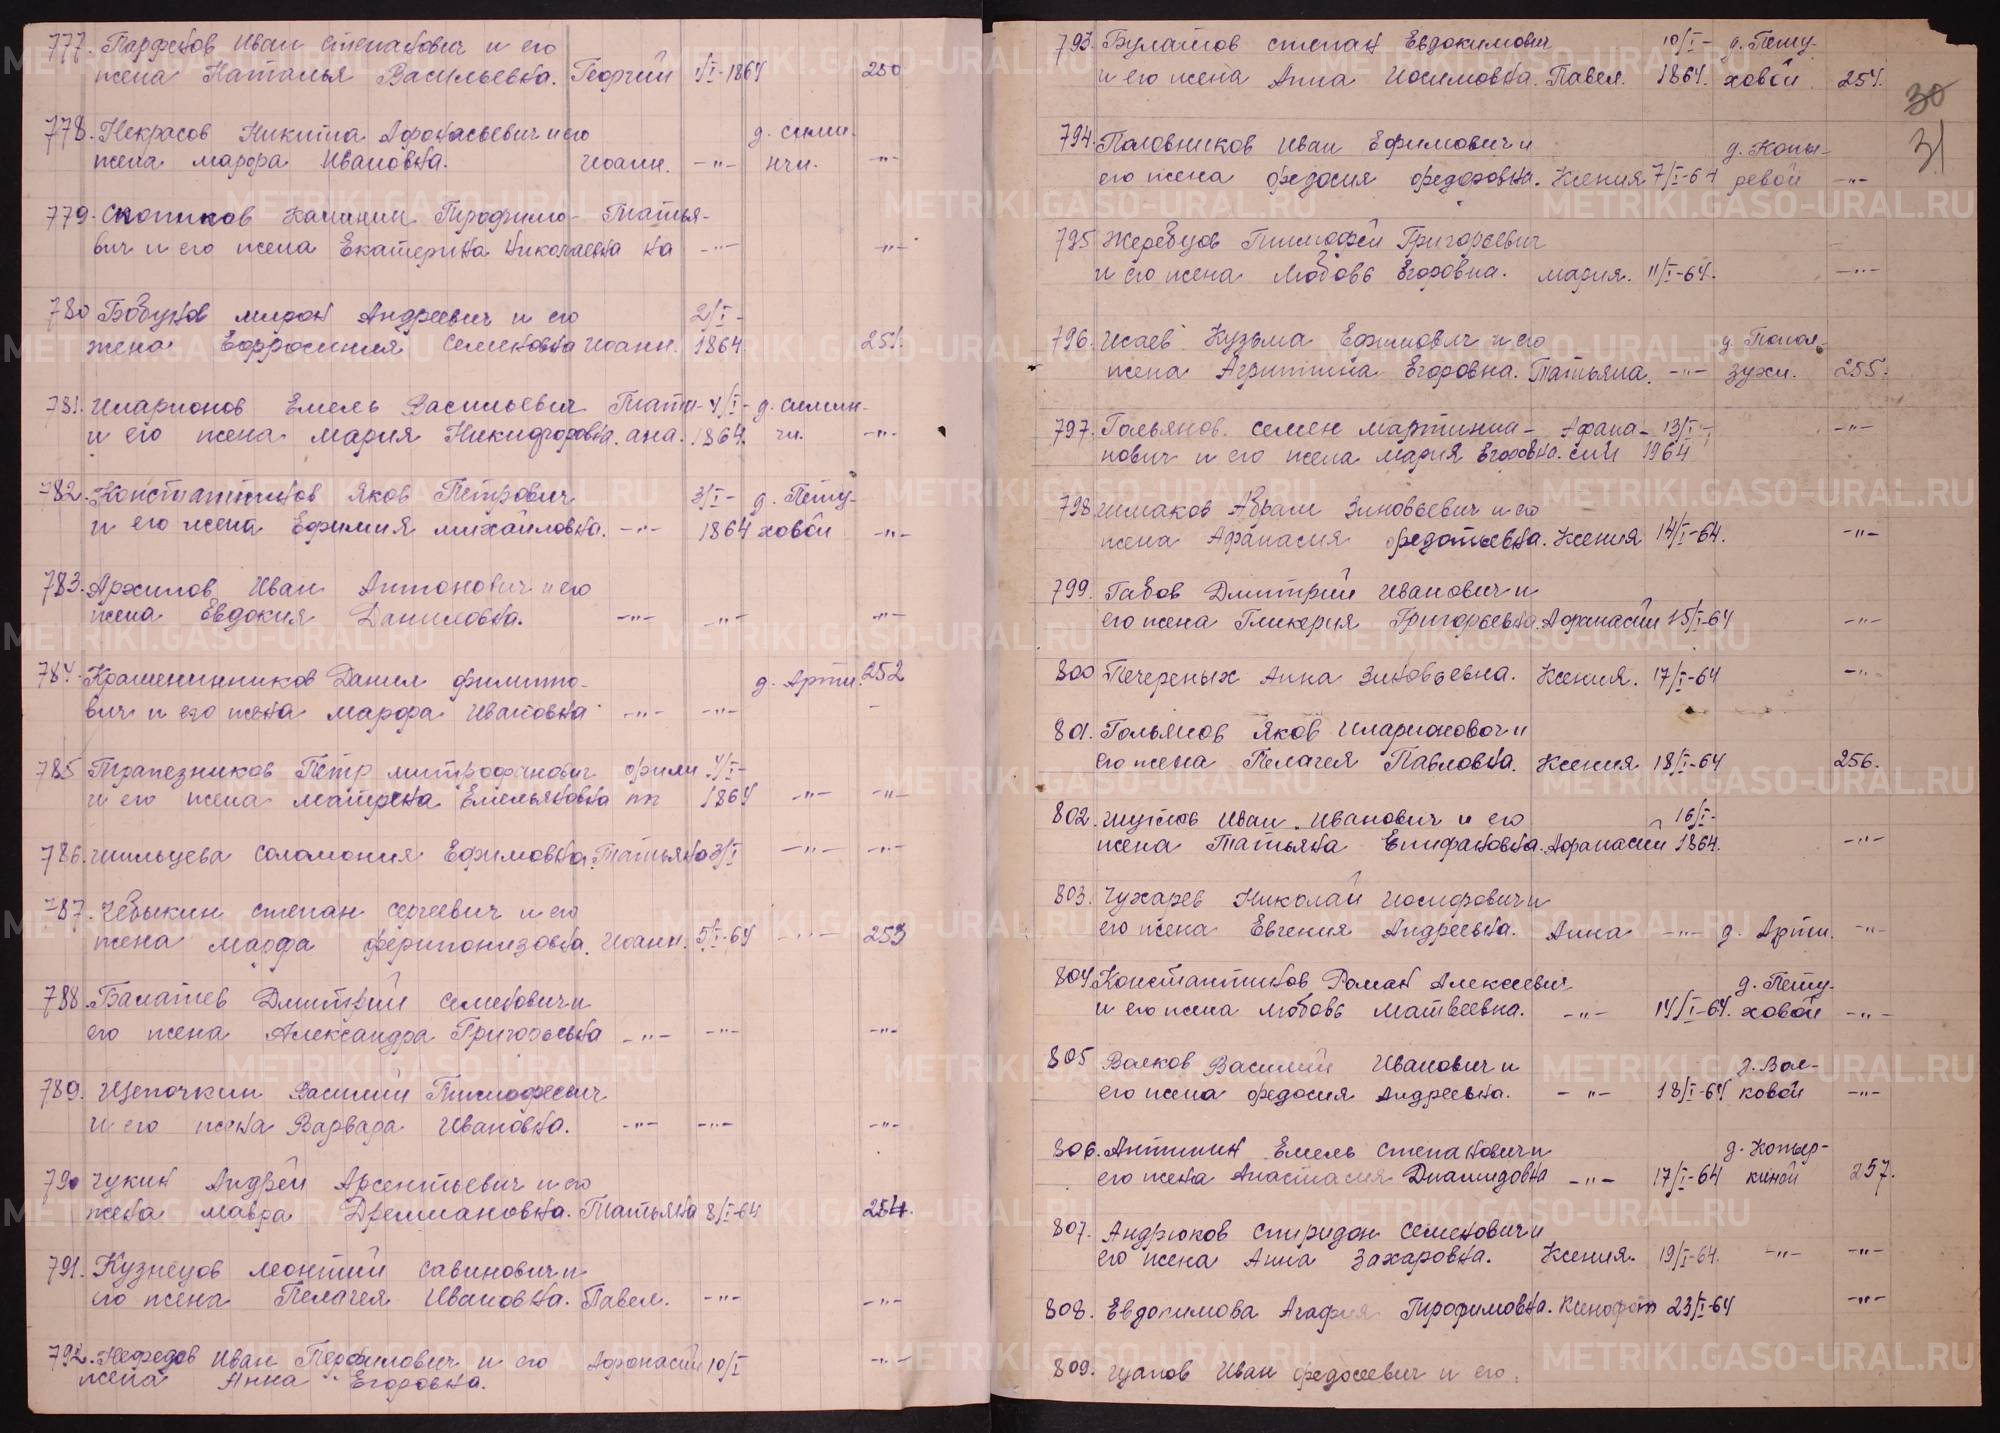 777. Парфенов Иван Степанович и его
жена Наталья Васильевна. Георгий 1/I-1864 250
778. Некрасов Никита Афонасьевич и его д. Сими-
жена Марфа Ивановна. Иоанн. -"- нчи. -"-
779. Скопинов Калинин Трофимо- Татья-
вич и его жена Екатерина Николаевна на -"- -"-
780 Бобунов Мирон Андреевич и его 2/I-
жена Ефросиния Семеновна Иоанн. 1864 251.
781. Иларионов Емель Васильевич Тати- 4/I- д. Симин-
и его жена Мария Никифоровна. ана. 1864. чи. -"-
782. Константинов Яков Петрович 3/I- д. Пету-
и его жена Ефимия Михайловна. -"- 1864 ховой -"-
783. Архипов Иван Антонович и его
жена Евдокия Даниловна. -"- -"- -"-
784. Крашенинников Данил Филиппо- д. Арти. 252
вич и его жена Марфа Ивановна -"- -"- -
785 Трапезников Петр Митрофанович Фили 4/I-
и его жена Матрена Емельяновна пп 1864 -"- -"-
786. Шильцева Соломония Ефимовна. Татьяна 3/I -"- -"-
787. Чебыкин Степан Сергеевич и его
жена Марфа Ферапонизовна. Иоанн. 5/I-64 -"- 253
788. Балашев Дмитрий Семенович и
его жена Александра Григорьевна -"- -"- -"-
789. Щепочкин Василий Тимофеевич
и его жена Варвара Ивановна. -"- -"- -"-
790 Чукин Андрей Арсентьевич и его
жена Мавра Дремиановна. Татьяна 8/I-64 254.
791. Кузнецов Леонтий Савинович и
его жена Пелагея Ивановна. Павел. -"- -"-
792. Нефедов Иван Перфилович и его Афонасий 10/I -"-
жена Анна Егоровна.
793. Булатов Степан Евдокимович 10/I- д. Пету-
и его жена Анна Иосимовна. Павел. 1864. ховой 254.
30
31
794. Половников Иван Ефимович и д. Копы-
его жена Федосия Федоровна. Ксения 7/I-64 ревой -"-
795 Жеребцов Тимофей Григорьевич
и его жена Любовь Егоровна. Мария. 11/I-64. -"-
796. Исаев Кузьма Ефимович и его д. Попол-
жена Агриппина Егоровна. Татьяна. -"- зухи. 255.
797. Гольянов Семен Мартиниа- Афана- 13/I- -"-
нович и его жена Мария Егоровна. сий 1964
798 Шмаков Абрам Зиновьевич и его
жена Афанасия Федотьевна. Ксения 14/I-64. -"-
799. Габов Дмитрий Иванович и
его жена Гликерия Григорьевна. Афанасий 15/I-64 -"-
800 Печереных Анна Зиновьевна. Ксения. 17/I-64 -"-
801. Гольянов Яков Иларионович и
его жена Пелагея Павловна. Ксения 18/I-64 256.
802. Шутов Иван Иванович и его 16/I-
жена Татьяна Епифановна. Афанасий 1864. -"-
803. Чухарев Николай Иосифович и
его жена Евгения Андреевна. Анна -"- д. Арти. -"-
804. Константинов Роман Алексеевич д. Пету-
и его жена Любовь Матвеевна. -"- 14/I-64. ховой -"-
805 Волков Василий Иванович и д. Вол-
его жена Федосия Андреевна. -"- 18/I-64 ковой -"-
806. Антипин Емель Степанович и д. Копыр-
его жена Анастасия Диамидовна -"- 17/I-64 киной 257.
807. Андрюков Спиридон Семенович и
его жена Анна Захаровна. Ксения. 19/I-64. -"- -"-
808. Евдокимова Агафия Трофимовна. Ксенофон 23/I-64 -"-
809. Щапов Иван Федосеевич и его